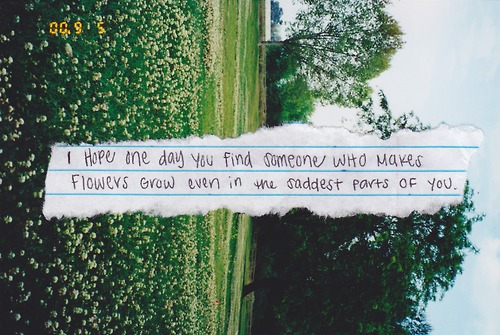 00.9 5
I HOPE one day you find someone WHO MAKES
FLOWERS GROW even in the saddest parts OF YOU.